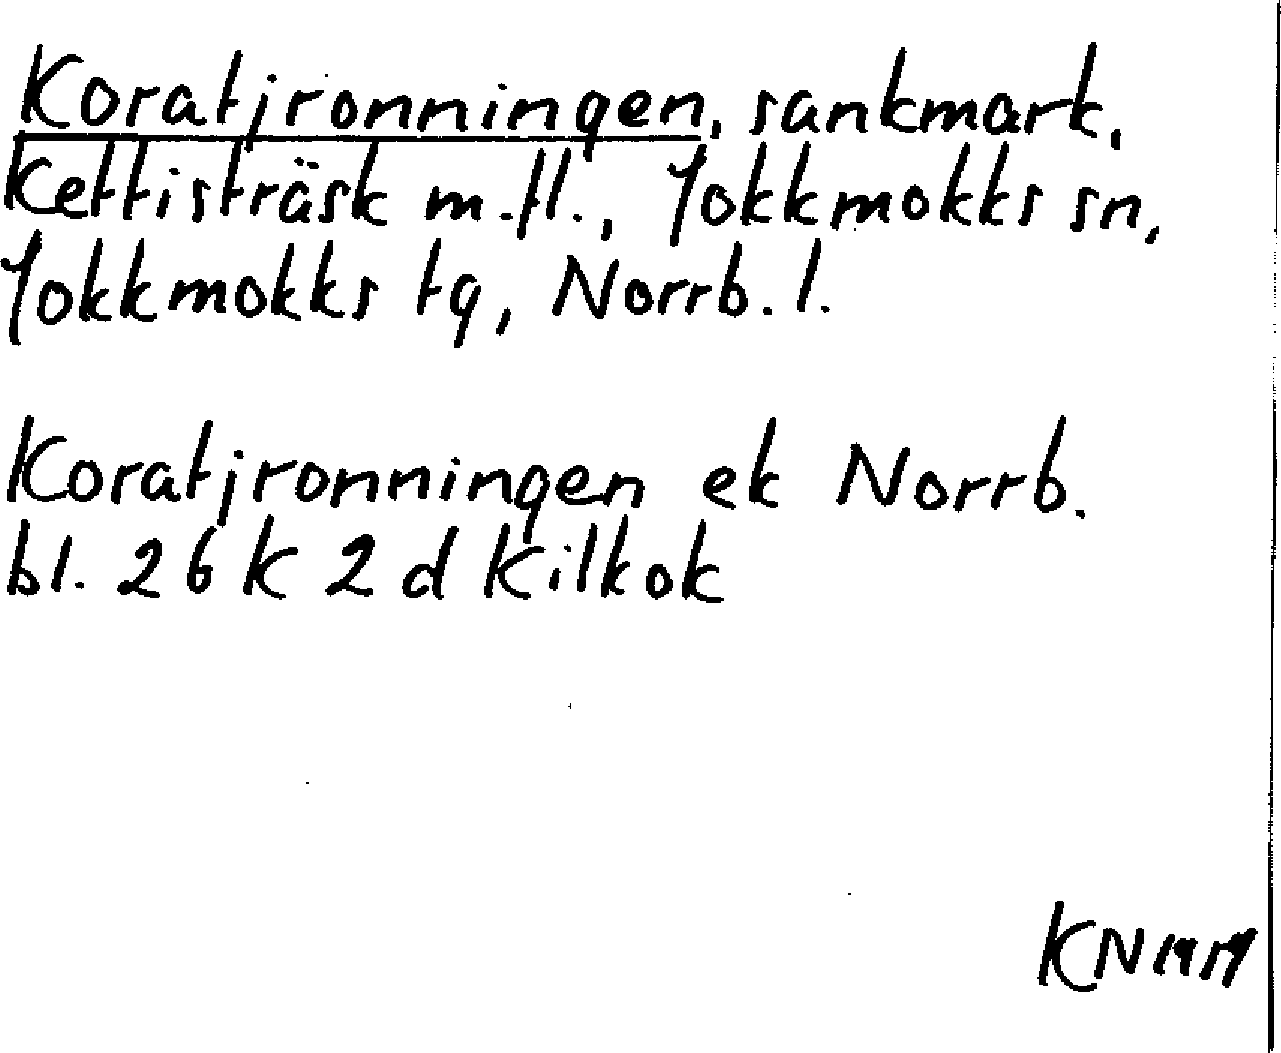 Koratjronningen, sankmark,
Kettisträsk m.fl., Jokkmokks sn,
Jokkmokks tg, Norrb. l.
Koratjronningen ek Norrb.
bl. 26 K 2 d Kilkok
KN